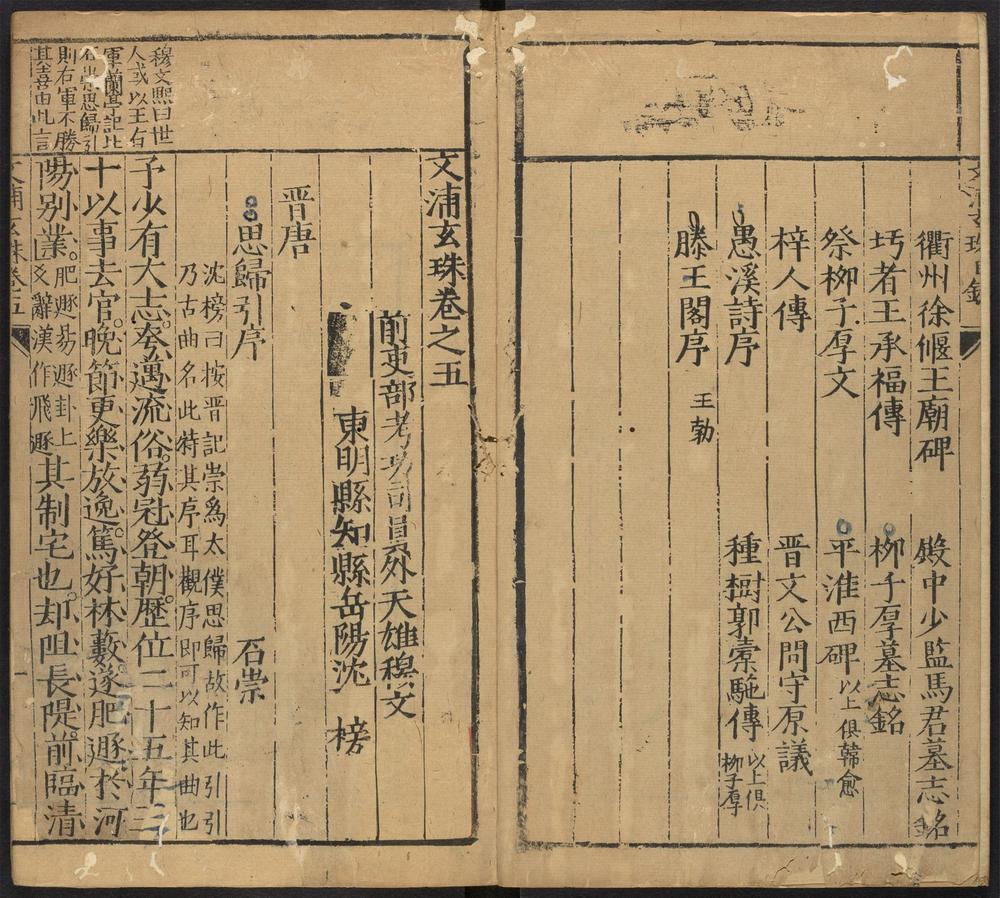 文浦玄珠目錄
衢州徐偃王廟碑　殿中少監馬君墓志銘
圬者王承福傳　柳子厚墓志銘
祭柳子厚文　平淮西碑 以上俱韓愈
梓人傳　晋文公問守原議
愚溪詩序　種樹郭橐駞傳 以上俱柳子厚
滕王閣序 王勃
文浦玄珠卷之五
前吏部考功司員外天雄穆文
東明縣知縣岳陽沈　榜
晋唐
思歸引序　石崇
沈榜曰按晋記崇爲太僕思歸故作此引引
乃古曲名此特其序耳觀序即可以知其曲也
予少有大志夸邁流俗弱冠登朝歷位二十五年
十以事去官晚節更樂放逸篤好林藪遂肥遯於河
陽别業 肥遯易遯卦上爻辭漢作飛遯 其制宅也却阻長隄前臨清
穆文熙曰世
人或以王右
軍蘭亭記比
石崇思歸引
則右軍不勝
其喜由此言
文浦玄珠卷五